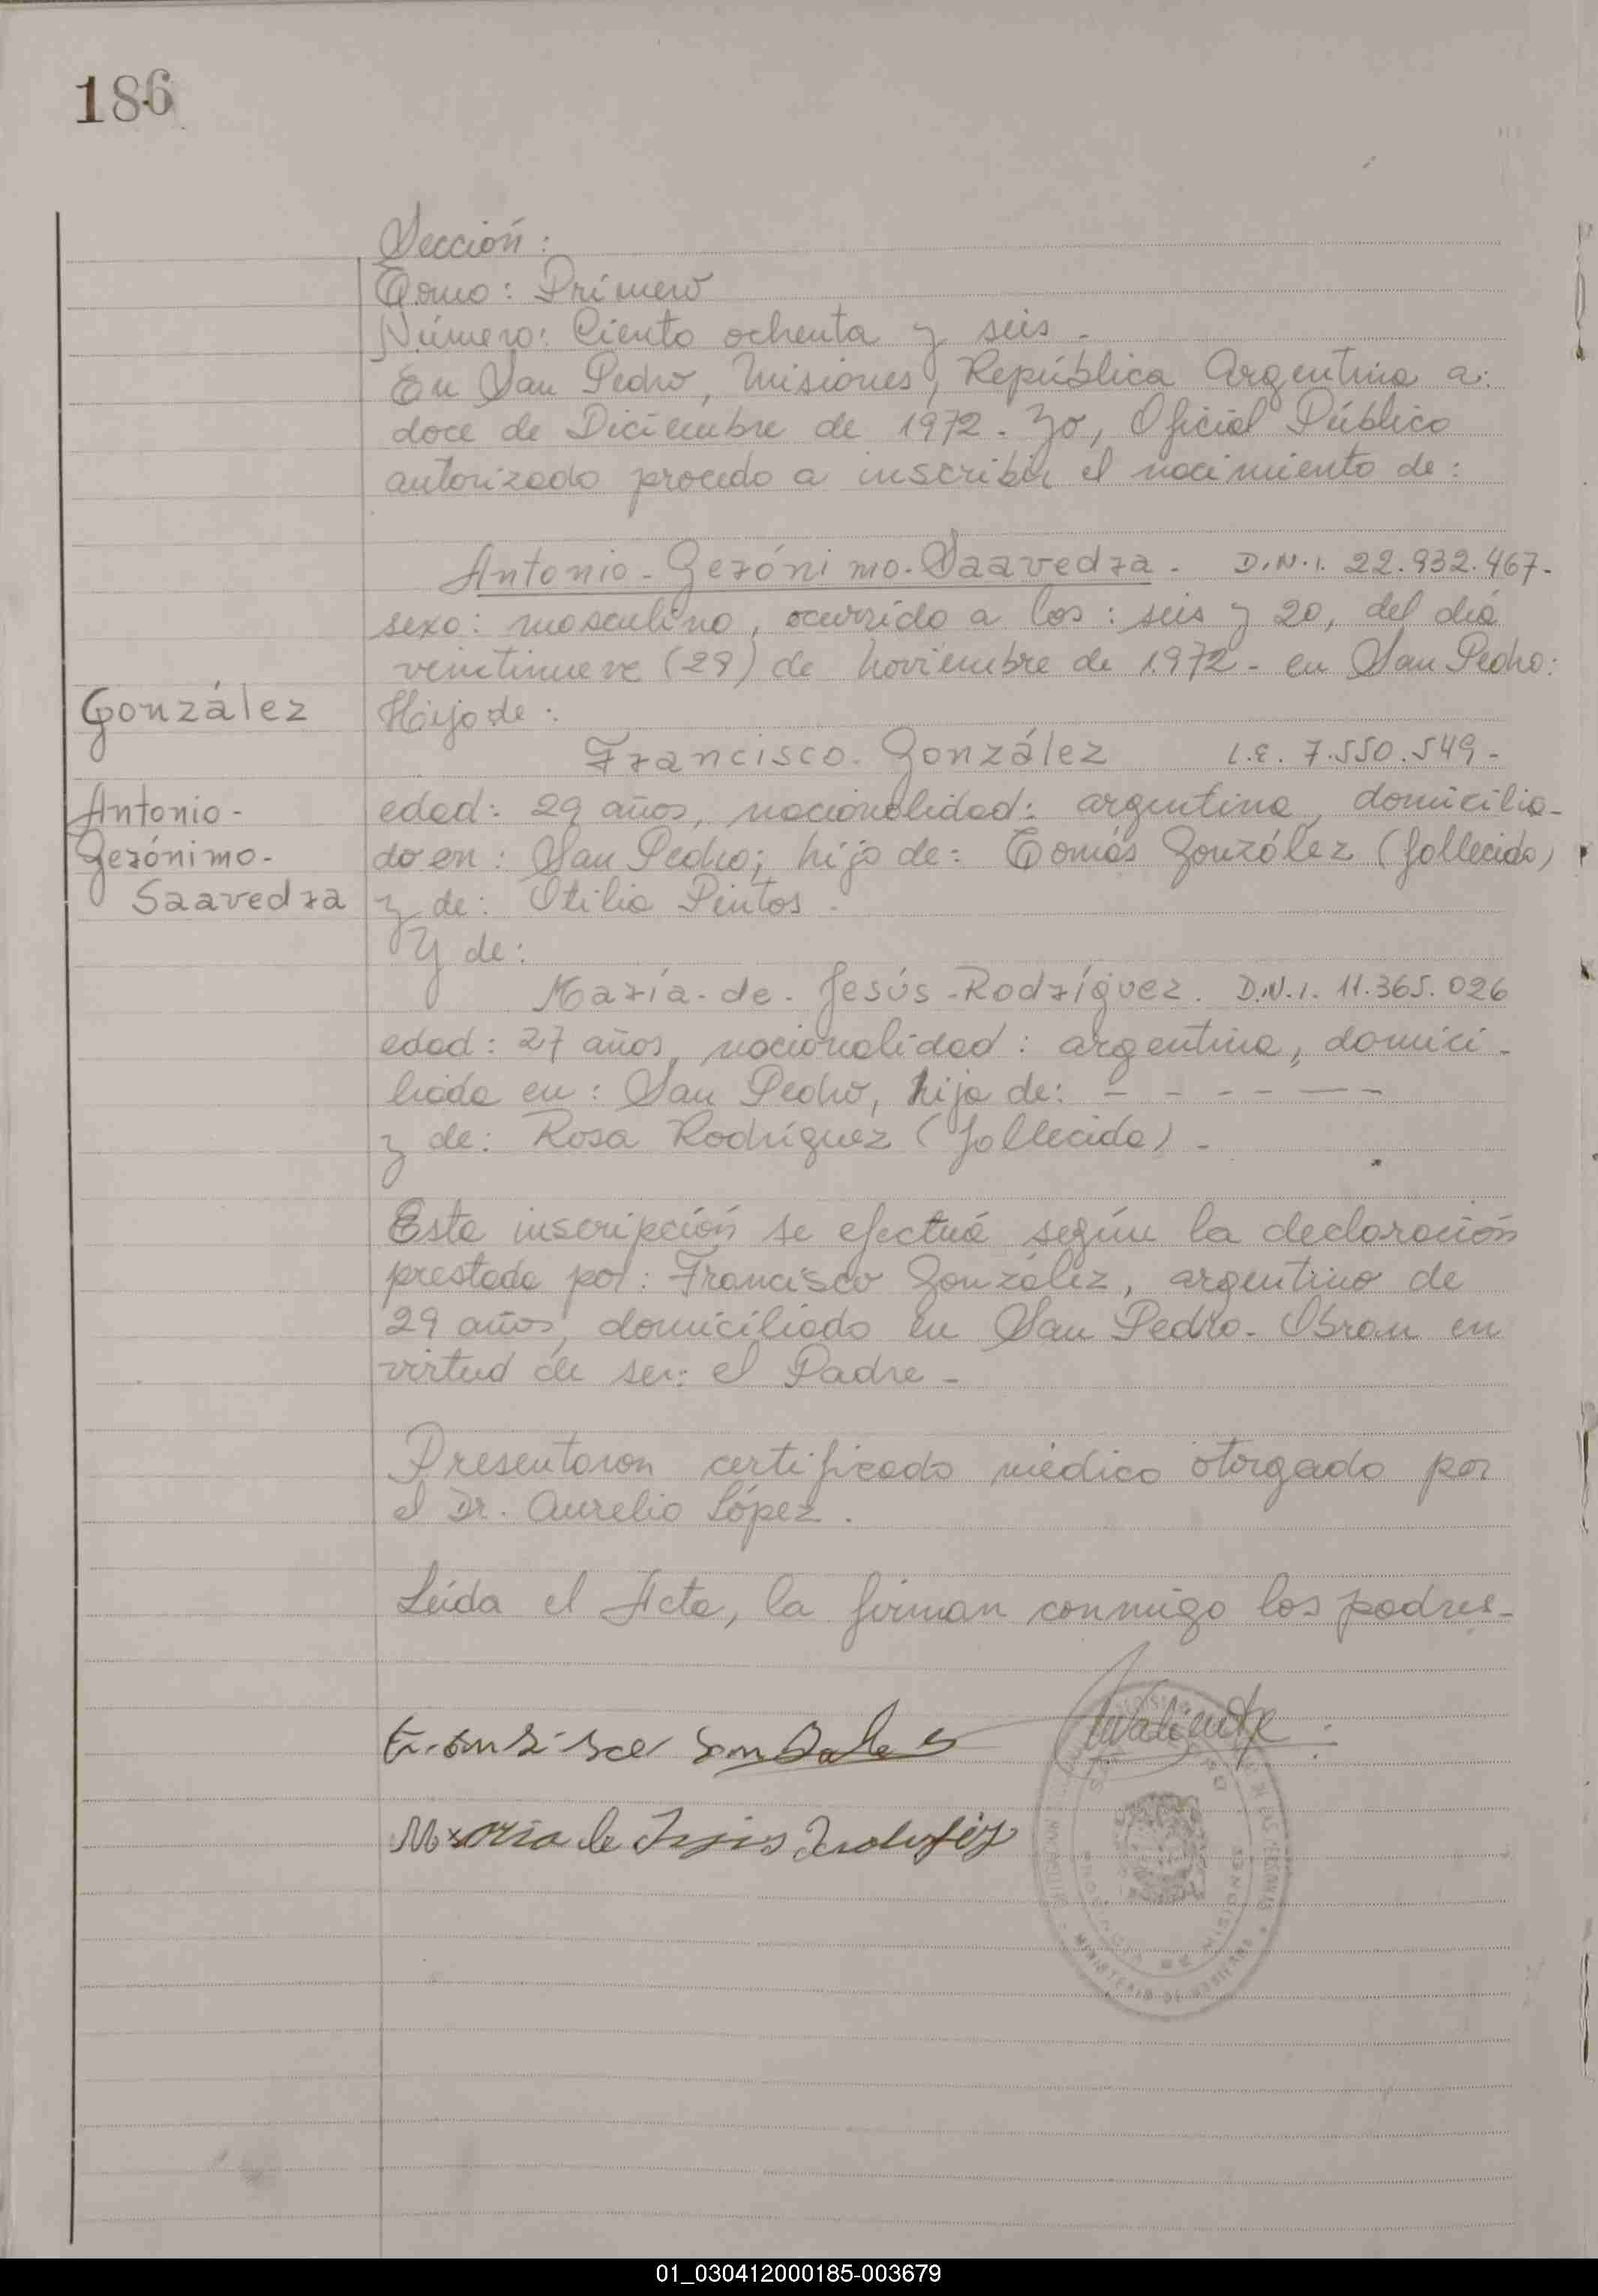 186
Sección:
Tomo: Primero
Número: Ciento ochenta y seis -
En San Pedro, Misiones, República Argentina a:
doce de Diciembre de 1972. Yo, Oficial Público
autorizado procedo a inscribir el nacimiento de:
Antonio - Gerónimo - Saavedra - D.N.I. 22.932.467-
sexo: masculino, ocurrido a las: seis y 20, del día
veintinueve (29) de Noviembre de 1.972 - en San Pedro:
González
Hijo de:
Francisco - González L.E. 7.550.549-
Antonio -
Gerónimo -
Saavedra
edad: 29 años, nacionalidad: argentina, domicilia-
do en: San Pedro; hijo de: Tomás González (fallecido)
y de: Otilia Pintos -
Y de:
María - de - Jesús - Rodríguez. D.N.I. 11.365.026
edad: 27 años, nacionalidad: argentina, domici -
liada en: San Pedro, hija de: - - - - - -
y de: Rosa Rodríguez (fallecida) -
Esta inscripción se efectuá según la declaración
prestada por: Francisco González, argentino de
29 años, domiciliado en San Pedro - Obran en
virtud de ser: el Padre -
Presentaron certificado médico otorgado por
el Dr. Aurelio López.
Leída el Acta, la firman conmigo los padres -
MINISTERIO DE GOBIERNO
DE MISIONES
01_030412000185-003679